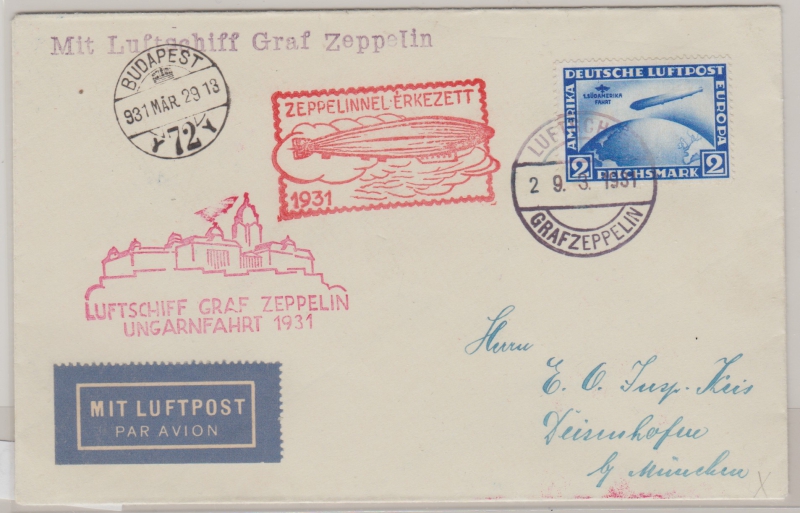 Mit Luftschiff Graf Zeppelin
BUDAPEST
931 MÁR. 29 13
72
ZEPPELINNEL-ÉRKEZETT
1931
DEUTSCHE LUFTPOST
AMERIKA
EUROPA
1. SÜDAMERIKA
FAHRT
2 REICHSMARK 2
LUFTSCHIFF
2 9. 3. 1931
GRAF ZEPPELIN
LUFTSCHIFF GRAF ZEPPELIN
UNGARNFAHRT 1931
MIT LUFTPOST
PAR AVION
Herrn
E. O. Insp. Keis
Deisenhofen
b/ München